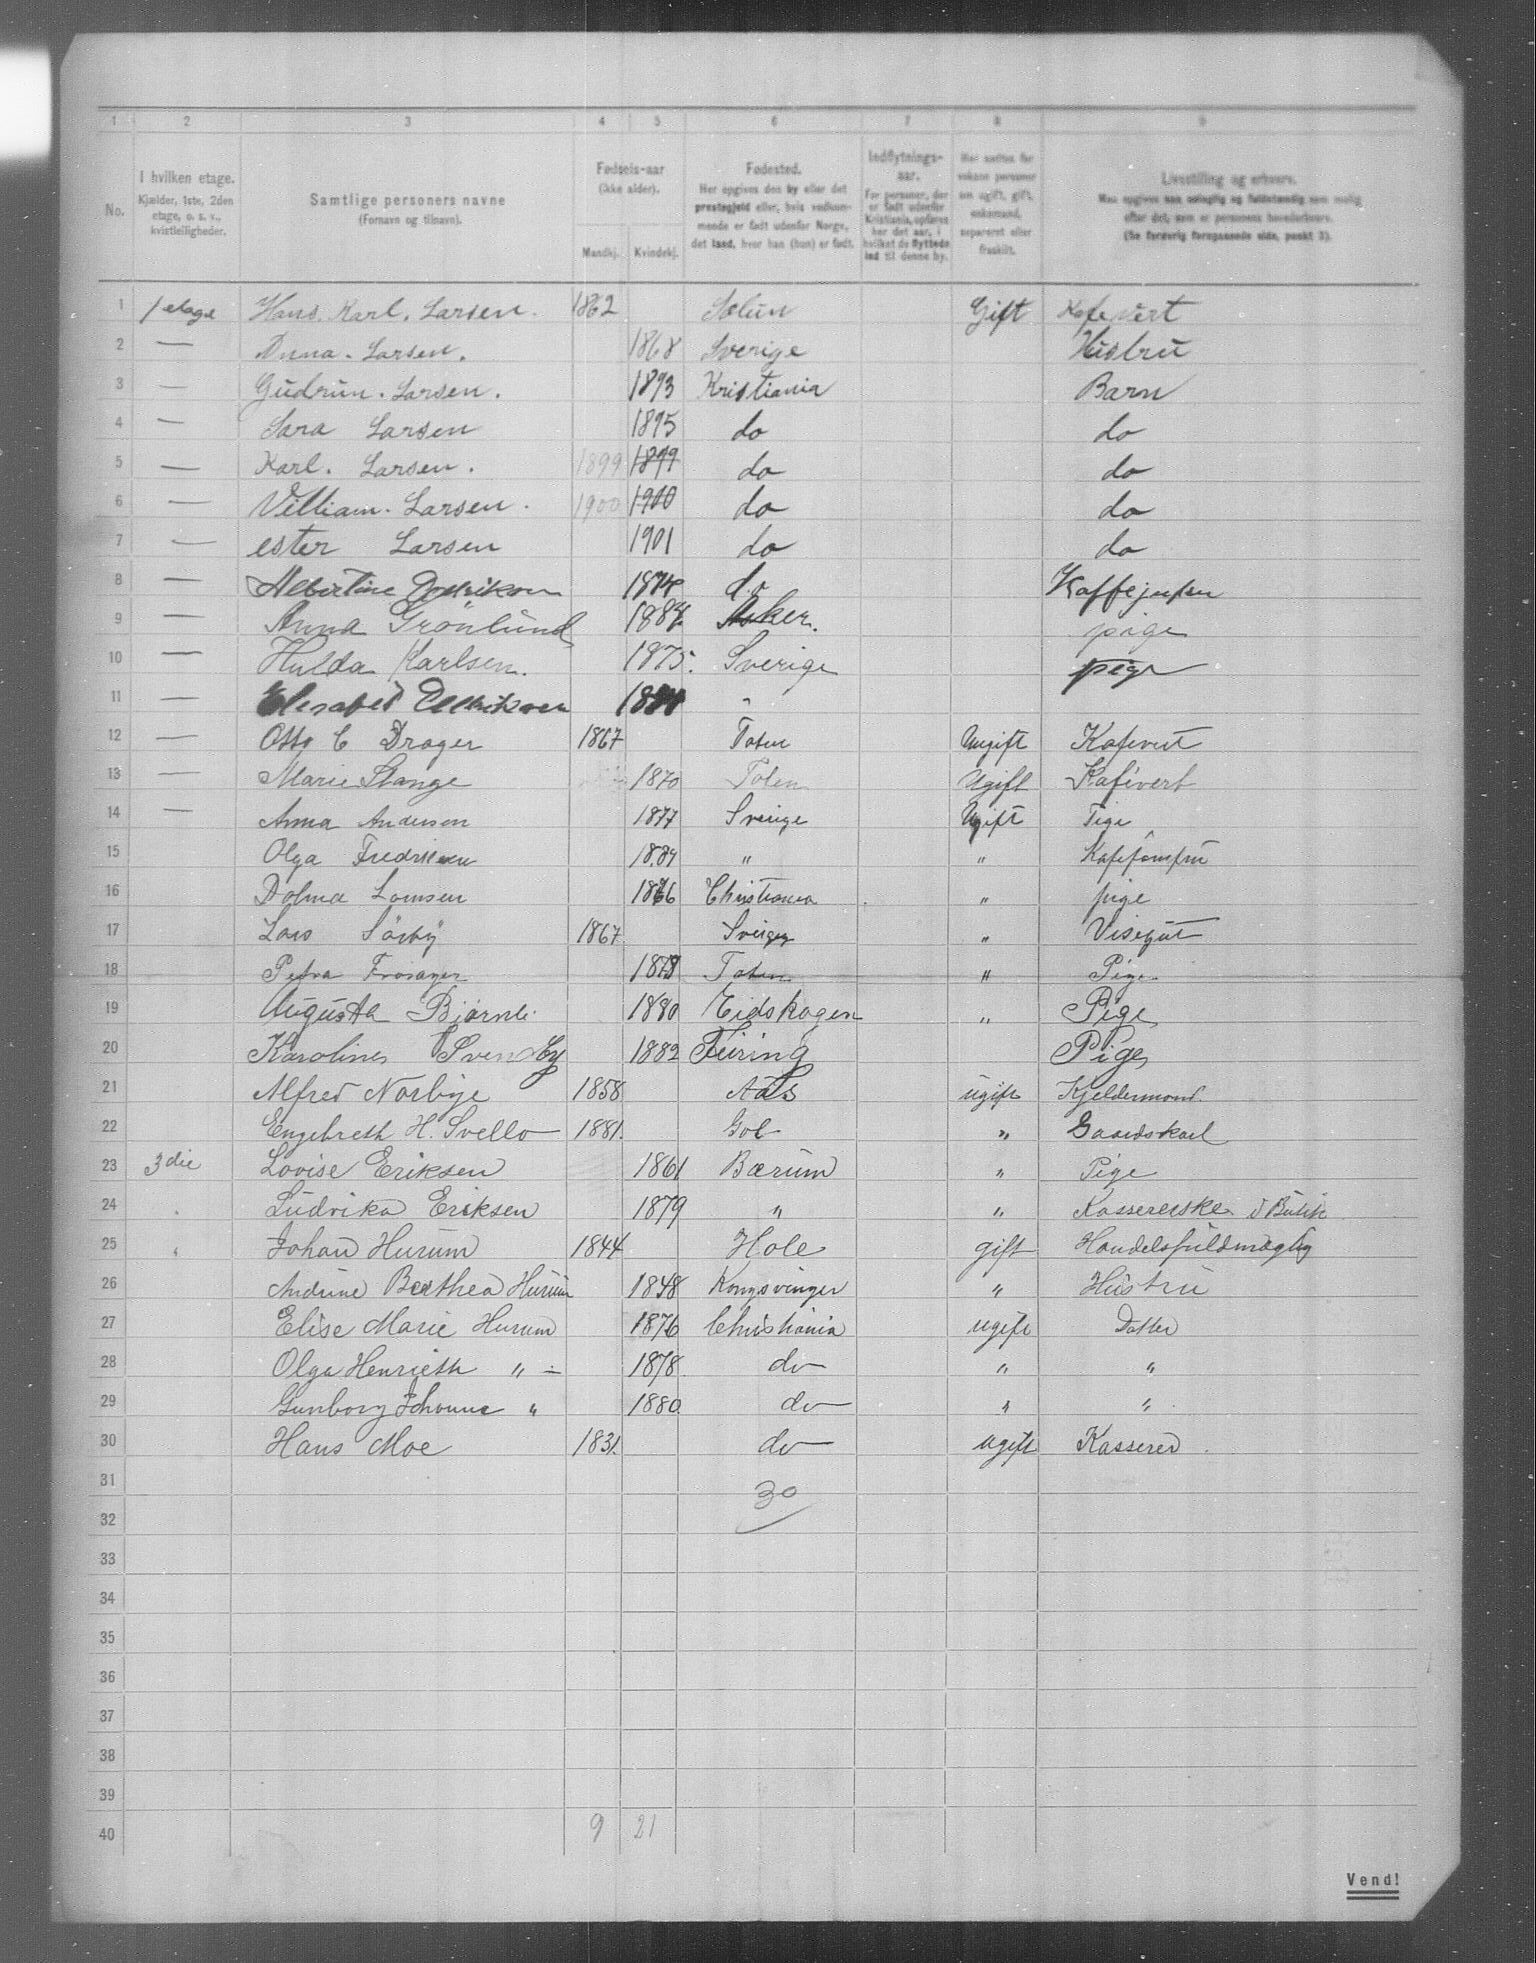 1 2 3 4 5 6 7 8 9
No. I hvilken etage. Kjælder, 1ste, 2den etage, o. s. v., kvistleiligheder. Samtlige personers navne (Fornavn og tilnavn). Fødsels-aar (ikke alder). Mandkj. Kvindekj. Fødested. Her opgives den by eller det prestegjeld eller, hvis vedkommende er født udenfor Norge, det land, hvor han (hun) er født. Indflytnings-aar. For personer, der er født udenfor Kristiania, opføres her det aar, i hvilket de flyttede ind til denne by. Her anføres for voksne personer om ugift, gift, enkemand, separeret eller fraskilt. Livsstilling og erhverv. Maa opgives saa nøiaglig og fuldstændig som mulig efter det, som er personens hovederhverv. (Se forøvrig foregaaende side, punkt 3).
1 1 etage Hans. Karl. Larsen. 1862 Solun Gift Kafevert
2 — Anna. Larsen. 1868 Sverige Hustru
3 — Gudrun. Larsen. 1893 Kristiania Barn
4 — Sara Larsen 1895 do do
5 — Karl. Larsen. 1899 1899 do do
6 — Villiam. Larsen. 1900 1900 do do
7 — ester Larsen 1901 do do
8 — Albertine 1874 do
9 — Anna Grönlund 1884 Asker. pige
10 — Hulda Karlsen. 1875. Sverige pige
11 — Elisabet "
12 — Otto C Drager 1867 Toten Uugift Kafevert
13 — Marie Stange 1870 Toten Ugift Kafévert
14 — Anna Andersen 1877 Sverige Ugift Pige
15 Olga Fredriksen 1884 " " Kafejomfru
16 Dolma 1876 Christiania " pige
17 Lars Sörby 1867 Sverige " Visegut
18 Petra 1878 Toten " Pige
19 Augusta Bjørnli 1880 Eidskogen " Pige
20 Karoline Svendby 1882 Feiring Pige
21 Alfred Norbye 1858 Aas ugift Kjeldermand.
22 Engebreth H. Svello 1881. Gol " Gaardskarl
23 3die Lovise Eriksen 1861 Bærum " Pige
24 Ludvika Eriksen 1879 " " Kassererske i Butik
25 Johan Hurum 1844 Hole gift Handelsfuldmægtig
26 Andrine Berthea Hurum 1848 Kongsvinger " Hustru
27 Elise Marie Hurum 1876 Christiania ugift Datter
28 Olga Henrieth " — 1878. do " "
29 Gunborg Johanne " 1880. do " "
30 Hans Moe 1831. do ugift Kasserer
31 30
32
33
34
35
36
37
38
39
40 9 21
Vend!